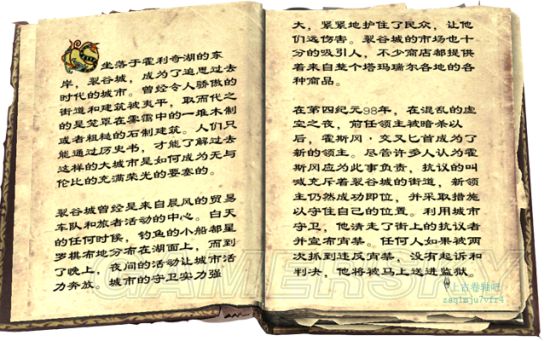 坐落于霍利奇湖的东
岸，裂谷城，成为了追思过去
时代的城市。曾经令人骄傲的
街道和建筑被夷平，取而代之
的是笼罩在雾霭中的一堆木制
或者粗糙的石制建筑。人们只
能通过历史书，才能了解过去
这样的大城市是如何成为无与
伦比的充满荣光的要塞的。
裂谷城曾经是来自晨风的贸易
车队和旅者活动的中心。白天
的任何时候，钓鱼的小船都星
罗棋布地分布在湖面上，而到
了晚上，夜间的活动让城市活
力奔放。城市的守卫实力强
大，紧紧地护住了民众，让他
们远伤害。裂谷城的市场也十
分的吸引人，不少商店都提供
着来自整个塔玛瑞尔各地的各
种商品。
在第四纪元98年，在混乱的虚
空之夜，前任领主被暗杀以
后，霍斯冈·交叉匕首成为了
新的领主。尽管许多人认为霍
斯冈应为此事负责，抗议的叫
喊充斥着裂谷城的街道，新领
主仍然成功即位，并采取措施
以守住自己的位置。利用城市
守卫，他清走了街上的抗议者
并宣布宵禁。任何人如果被两
次抓到违反宵禁，没有起诉和
判决，他将被马上送进监狱。
GAMERSKY
上古卷轴吧
zaq1mju7vfr4